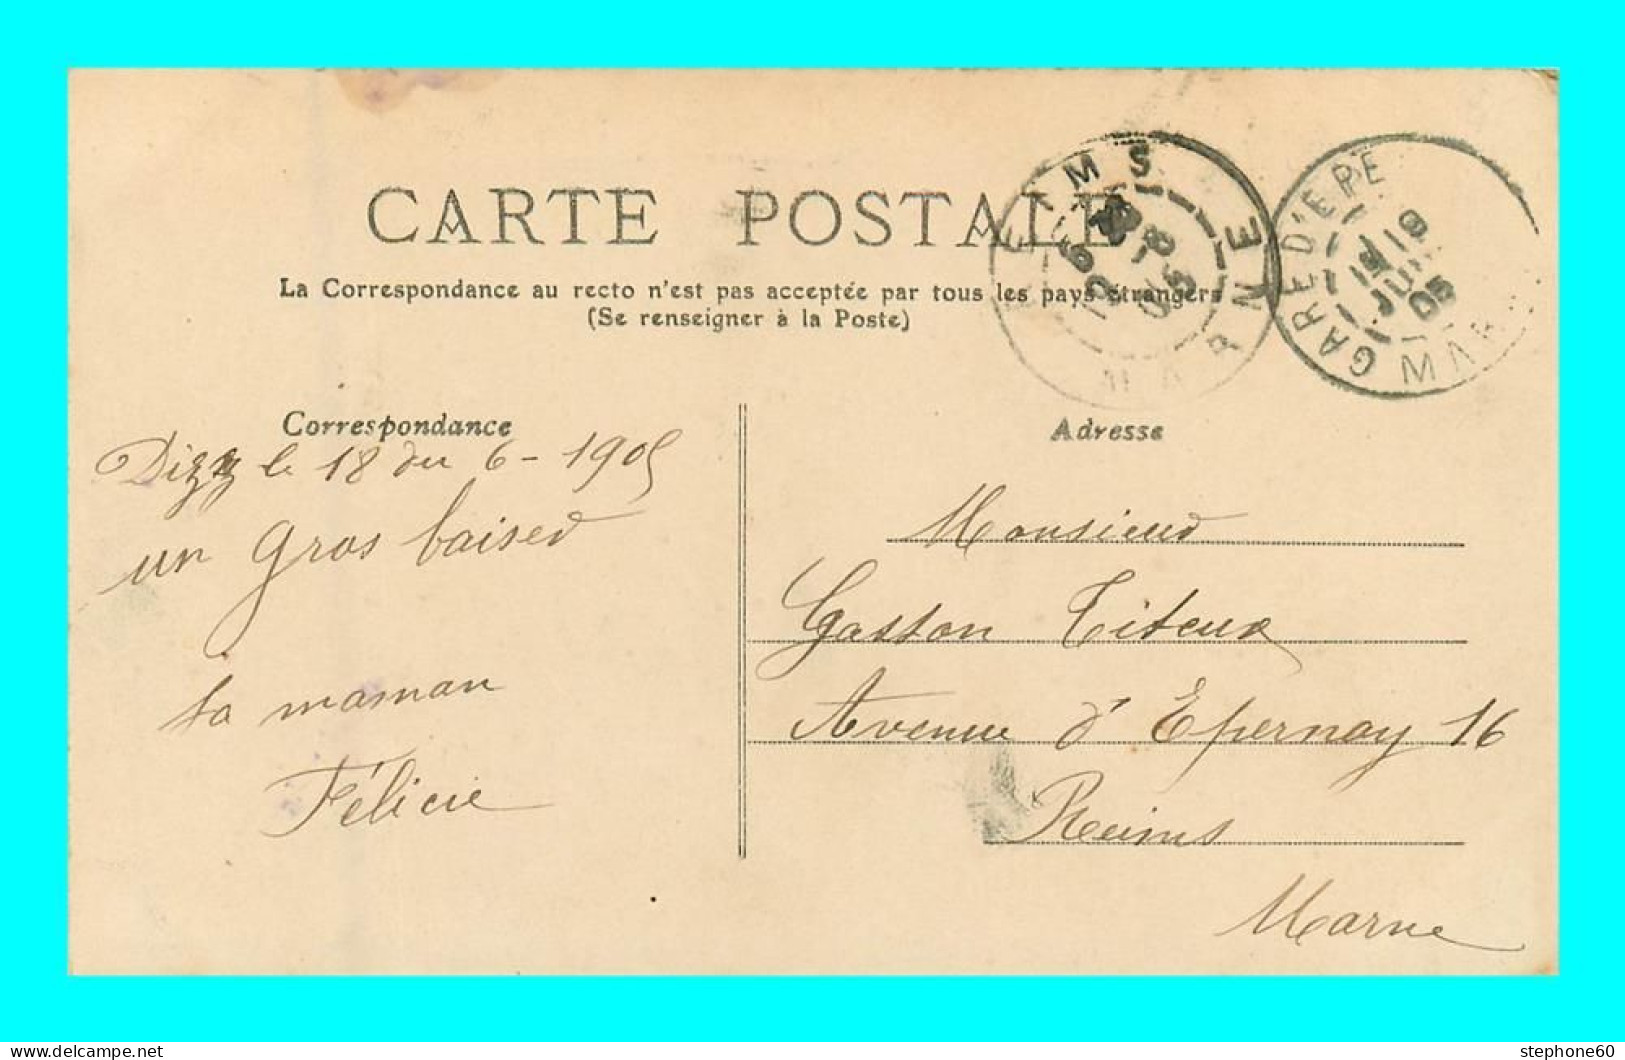 CARTE POSTALE
La Correspondance au recto n'est pas acceptée par tous les pays étrangers
(Se renseigner à la Poste)
REIMS
MARNE
GARE D'EPE
19
JUIN
05
MAR
Correspondance
Dizy le 18 du 6 - 1905
un gros baiser
ta maman
Félicie
Adresse
Monsieur
Gaston Titeux
Avenue d'Epernay 16
Reims
Marne
delcampe.net
stephone60